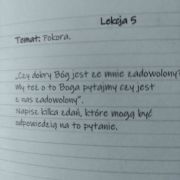 Lekcja 5
Temat: Pokora.
„Czy dobry Bóg jest ze mnie zadowolony?
My też o to Boga pytajmy czy jest
z nas zadowolony".
Napisz kilka zdań, które mogą być
odpowiedzią na to pytanie.